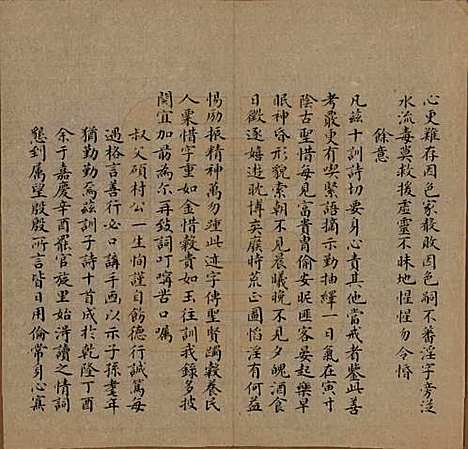 心更難存因色家教敗因色嗣不蕃淫字旁從
水流毒莫救援虛靈不昧地惺惺勿令惛
餘意
凡茲十訓詩切要身心責其他當戒者擧此善
考最更有崇簡語摘示勤抽繹一日氣在寅寸
陰古聖惜每見富貴胄偷安昵匪客晏起樂早
眠神昏形貌索朝不見晨曦晚不見夕醜酒食
日徵逐嬉遊耽博奕廢時荒正圖慆淫有何益
惕勵振精神萬勿踵此迹字傳聖賢躅穀養民
人粟惜字重如金惜穀貴如玉往訓我錄多披
閱宜加勖為尔再致詞叮嚀苦口
叔父碩村公一生恂謹自飭德行誠篤每
遇格言善行必口講手画以示子孫耋年
猶勤勤焉茲訓子詩十首成於乾隆丁酉
余于嘉慶辛酉罷官旋里始淂讀之情詞
懇到屬望殷殷所言皆日用倫常身心寔